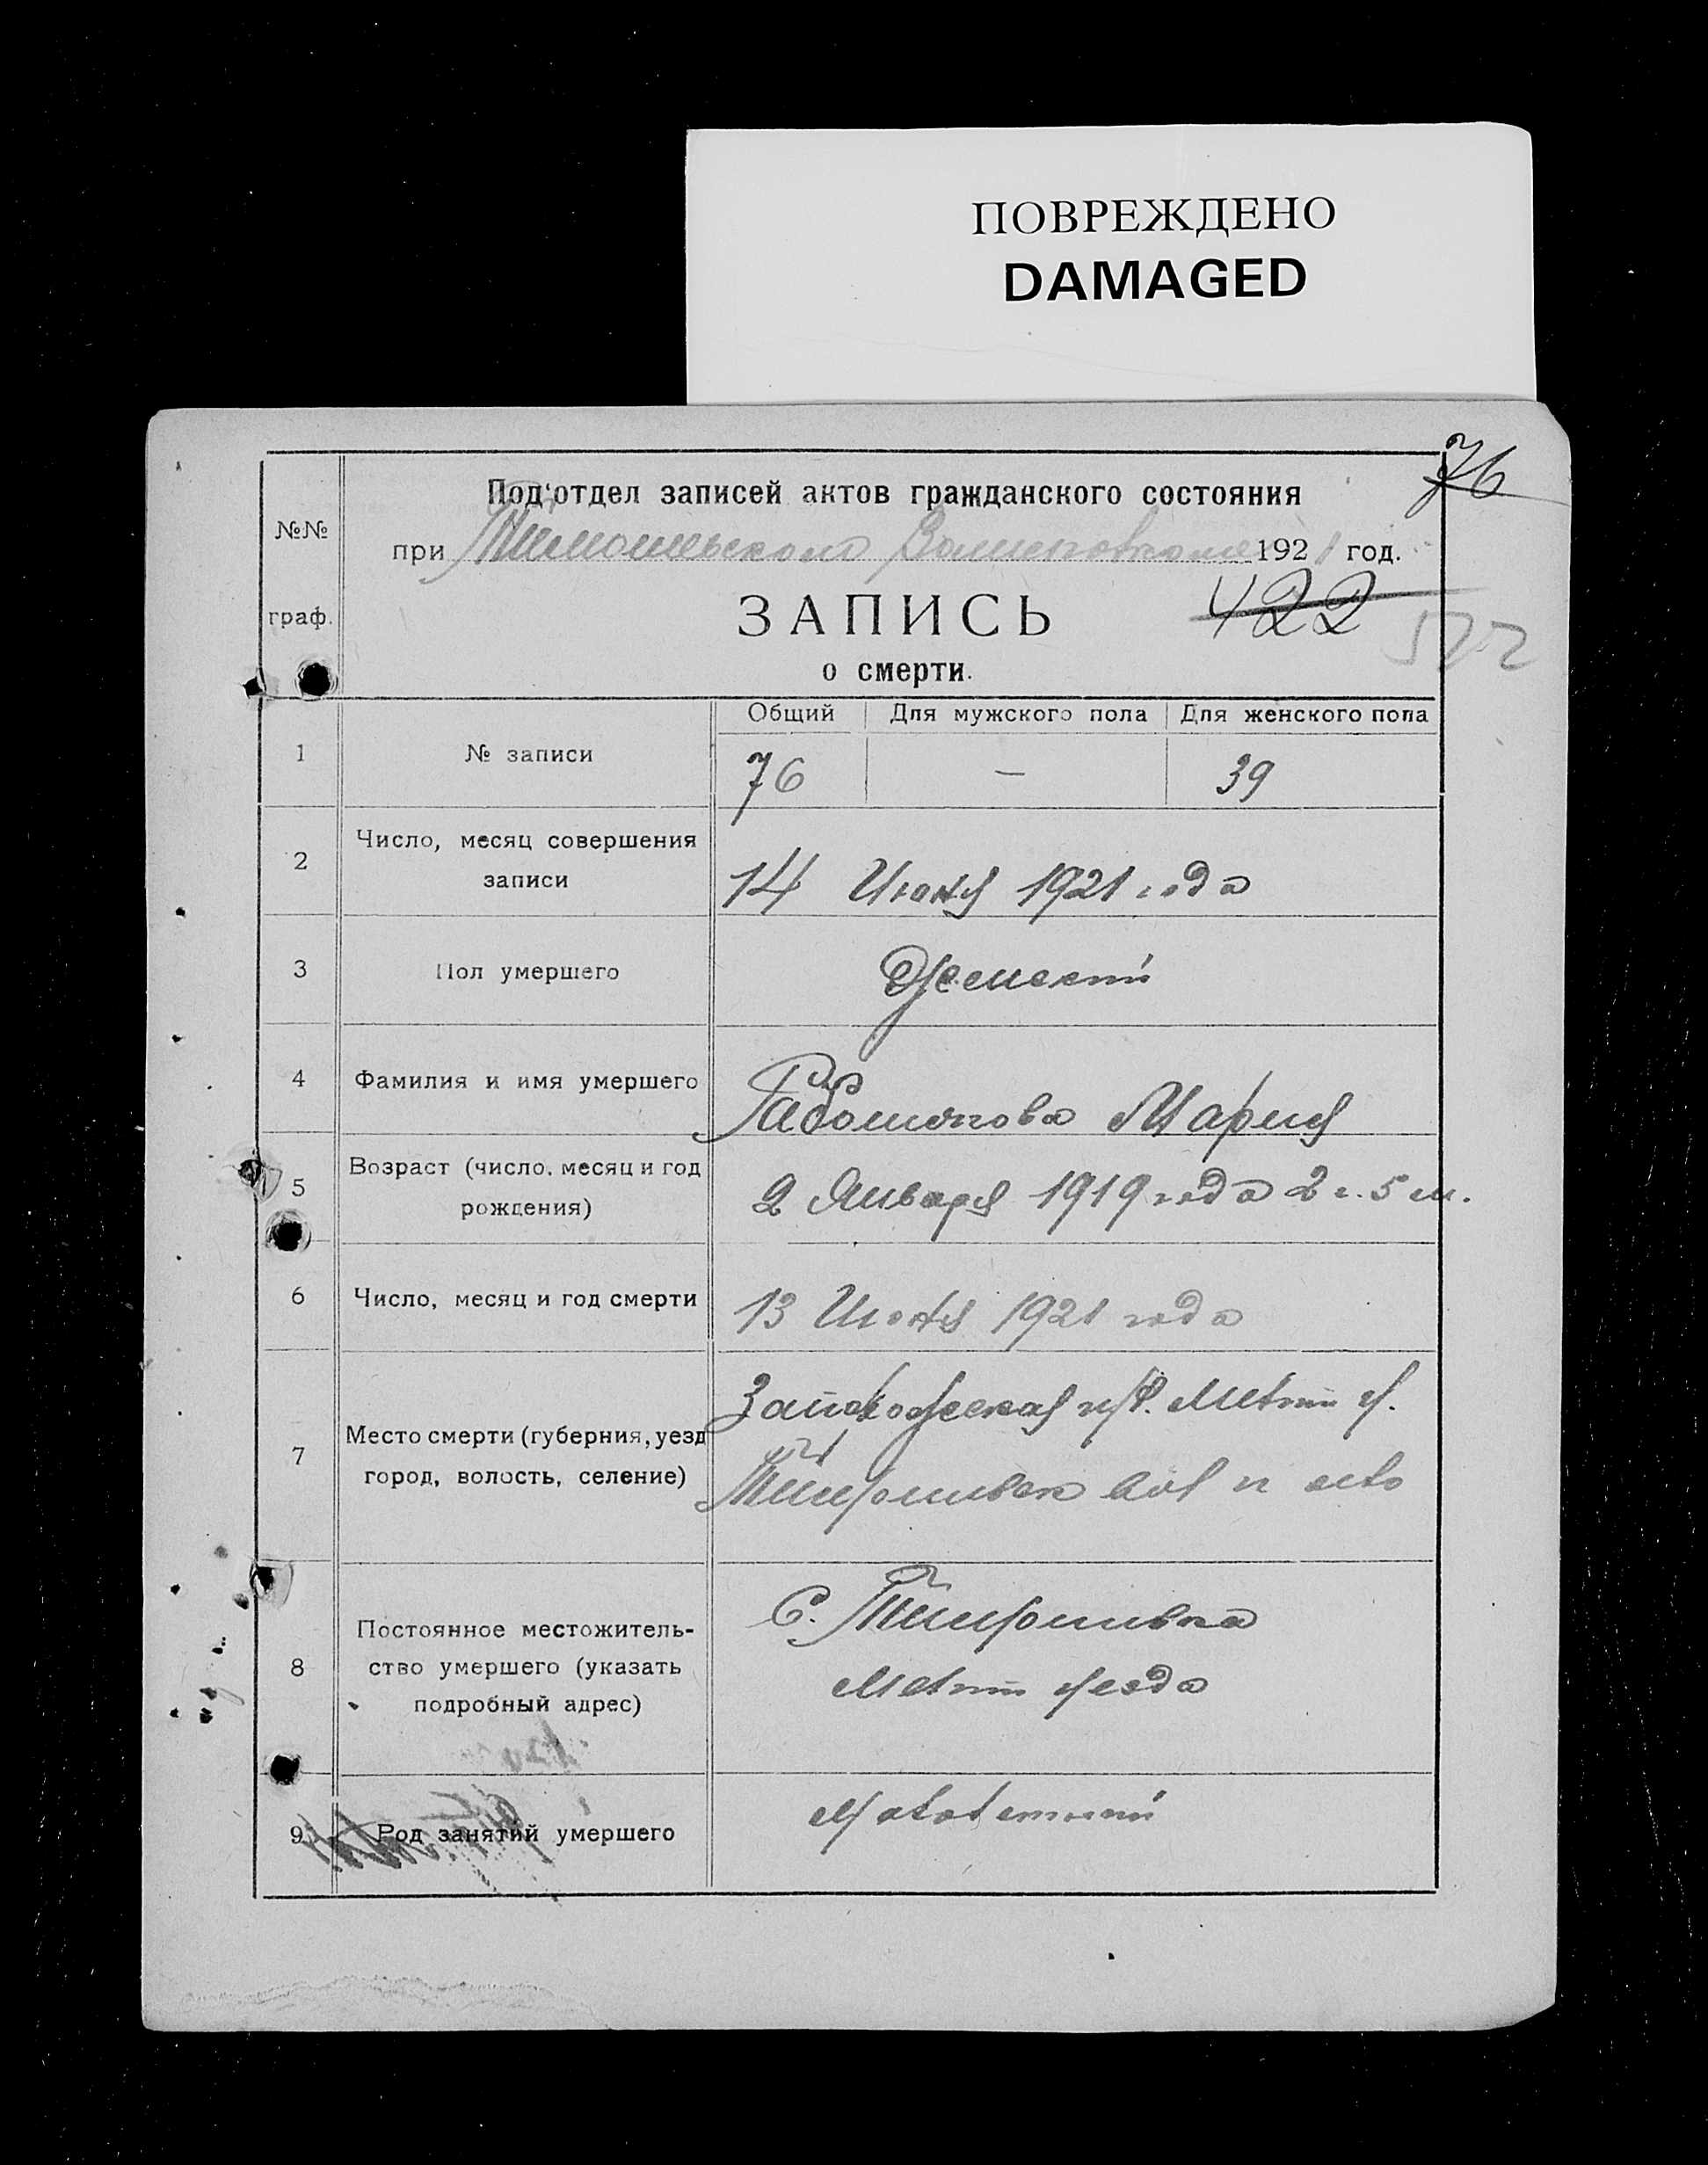 ПОВРЕЖДЕНО
DAMAGED
76
№№
граф.
Под'отдел записей актов гражданского состояния
при 1921 год.
ЗАПИСЬ
422
522
о смерти.
Общий Для мужского пола Для женского пола
1 № записи 76 — 39
2 Число, месяц совершения
записи
14 Июня 1921 года
3 Пол умершего Женский
4 Фамилия и имя умершего Мария
5 Возраст (число, месяц и год
рождения)
2 Января 1919 года 2 г. 5 м.
6 Число, месяц и год смерти 13 Июня 1921 года
7 Место смерти (губерния, уезд
город, волость, селение)
Мелит у.
вол и село
8 Постоянное местожитель-
ство умершего (указать
подробный адрес)
С. Тимошивка
Мелит уезда
9 Род занятий умершего